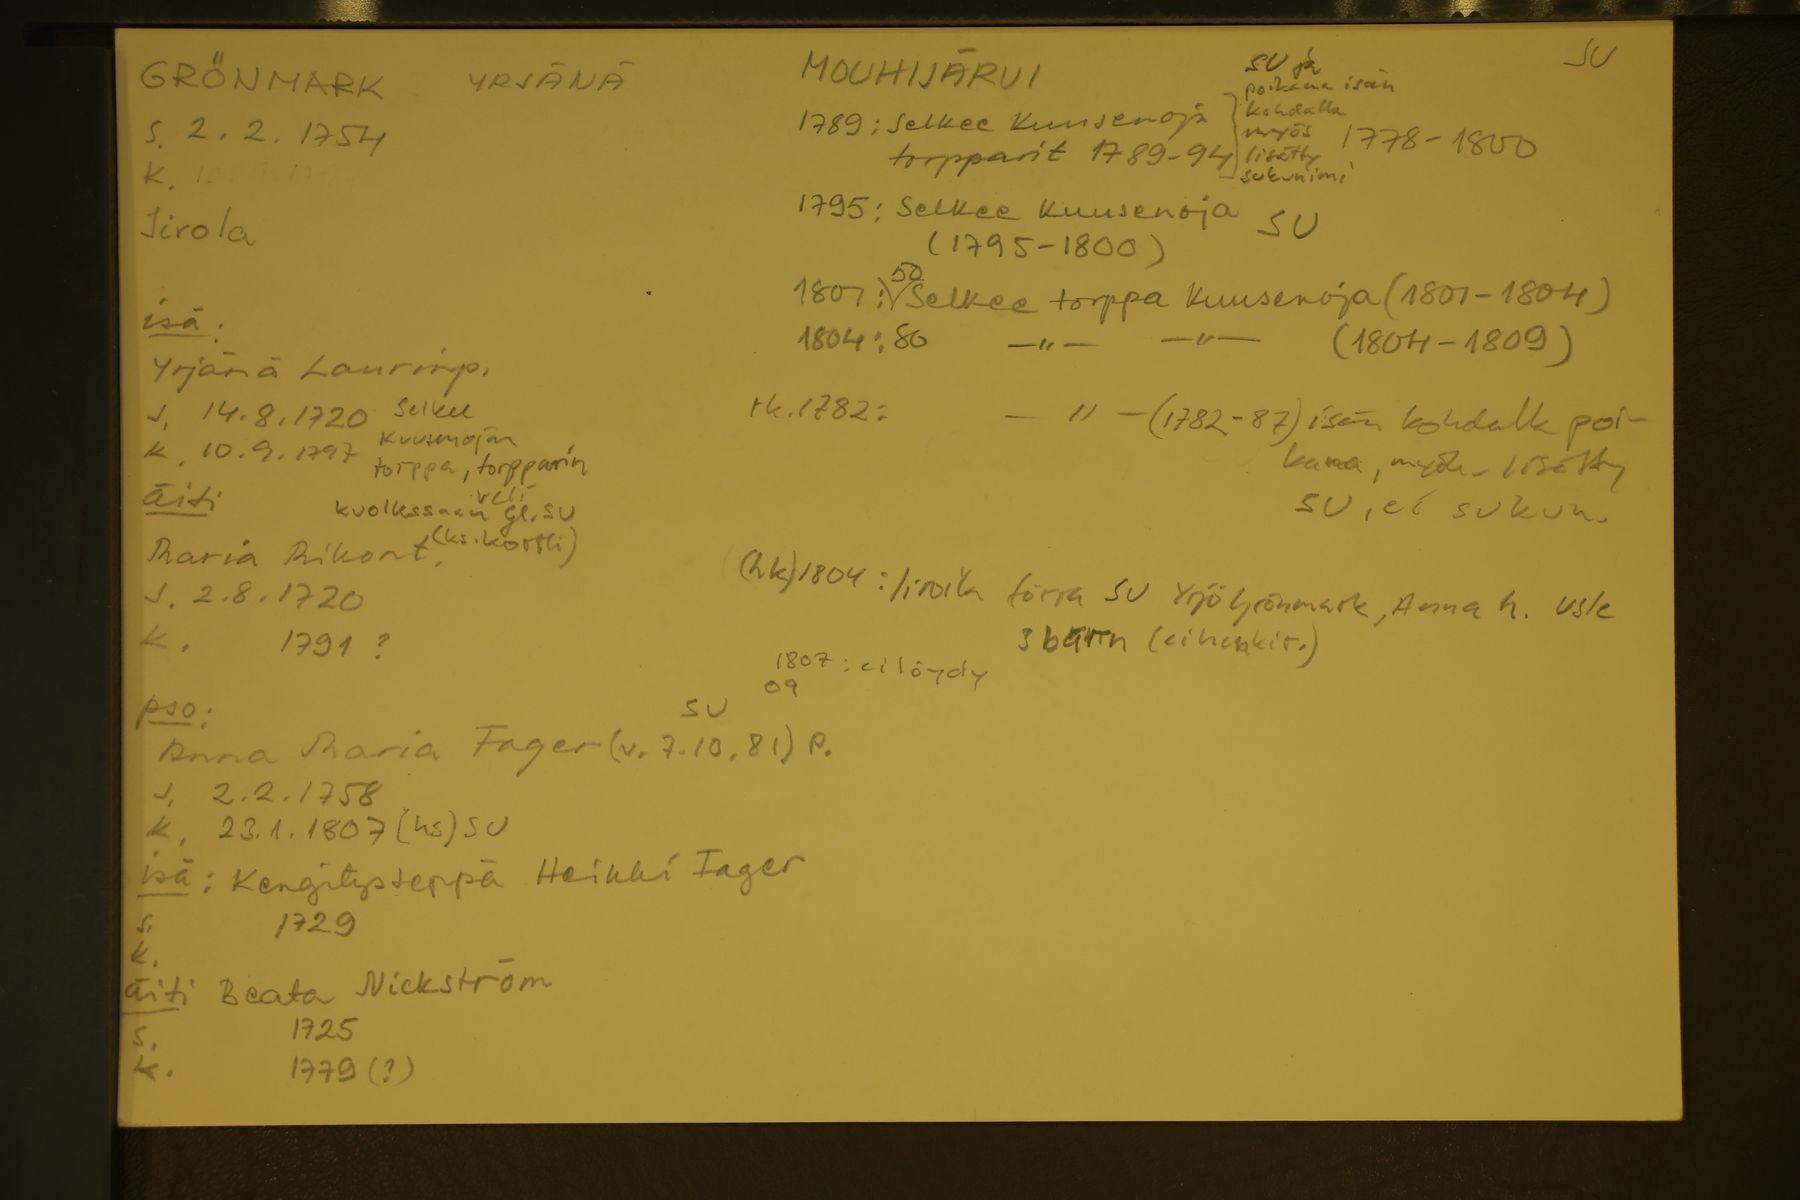 GRÖNMARK YRJÄNÄ MOUHIJÄRVI SU
s. 2.2. 1754
k.
Iirola
isä:
Yrjänä Laurinp.
s. 14.8.1720 Selkee
k. 10.9.1797 Kuusenojan
torppa, torpparin
veli
kuollessaan SU
(ks. kortti)
äiti
Maria Mikont.
s. 2.8.1720
k. 1791 ?
pso:
SU
Anna Maria Fager (v. 7.10.81) p.
s. 2.2.1758
k. 23.1.1807 (hs) SU
isä: Kengityseppä Heikki Fager
s. 1729
k.
äiti Beata Nickström
s. 1725
k. 1779 (?)
1789: Selkee Kuusenoja
torpparit 1789-94
SU ja
poikana isän
kohdalla
myös
lisätty
sukunimi
1778-1800
1795: Selkee Kuusenoja SU
(1795-1800)
50
1801: Selkee torppa Kuusenoja (1801-1804)
1804: 80 —"— —"— (1804-1809)
rk. 1782: — " — (1782-87) isän kohdalla poi-
kana, myöh. lisätty
SU, ei sukun.
(hk) 1804: Iirola förra SU Yrjö Grönmark, Anna h.
3 barn (ei henkir.)
1807: ei löydy
09